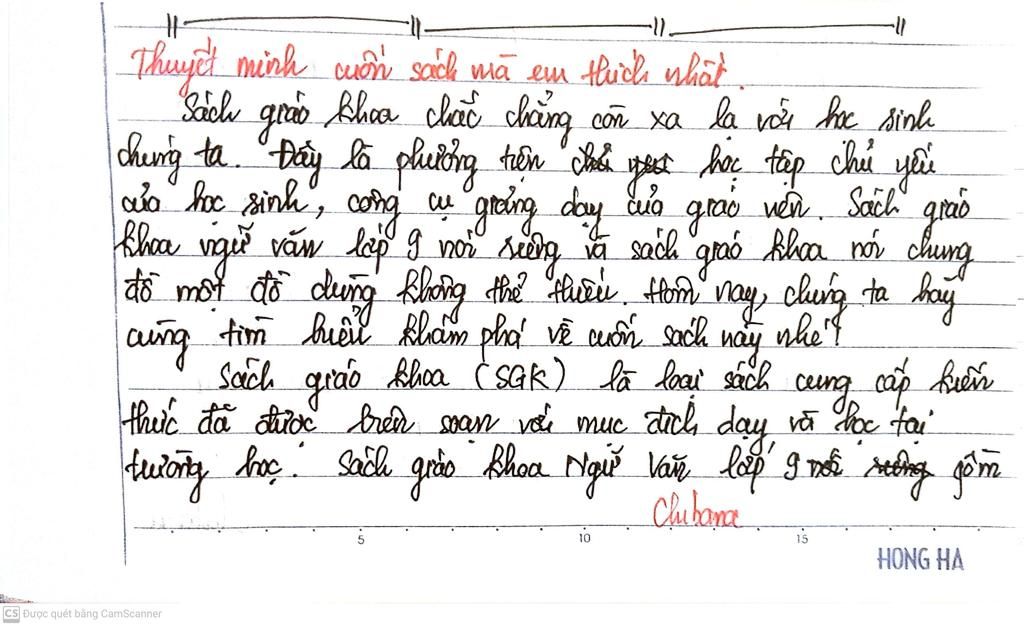 Thuyết minh cuốn sách mà em thích nhất.
Sách giáo khoa chắc chẳng còn xa lạ với học sinh
chúng ta. Đây là phương tiện học tập chủ yếu
của học sinh, công cụ giảng dạy của giáo viên. Sách giáo
khoa ngữ văn lớp 9 nói riêng và sách giáo khoa nói chung
đồ một đồ dùng không thể thiếu. Hôm nay, chúng ta hãy
cùng tìm hiểu khám phá về cuốn sách này nhé!
Sách giáo khoa (SGK) là loại sách cung cấp kiến
thức đã được biên soạn với mục đích dạy và học tại
trường học. Sách giáo khoa Ngữ Văn lớp 9 gồm
5 10 15
HONG HA
CS Được quét bằng CamScanner